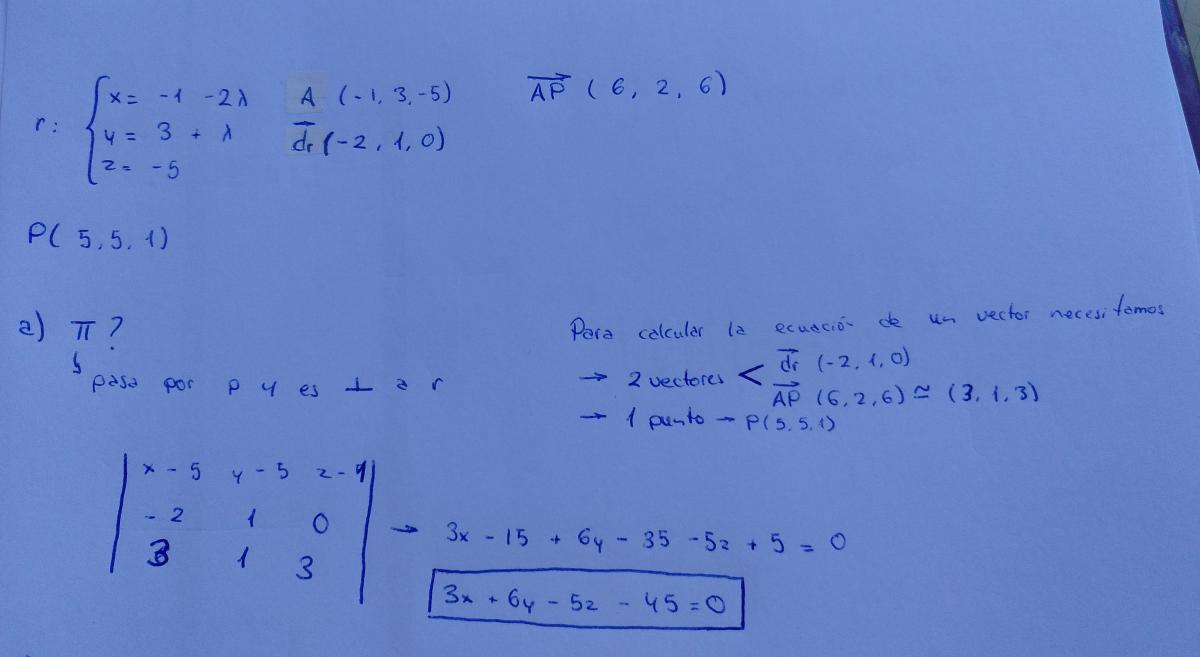 r: { x = -1 - 2λ A (-1, 3, -5) AP (6, 2, 6)
y = 3 + λ dr (-2, 1, 0)
z = -5
P( 5, 5, 1)
a) π?
↳ pasa por P y es ⊥ a r
Para calcular la ecuación de un vector necesitamos
→ 2 vectores < dr (-2, 1, 0)
AP (6, 2, 6) ≃ (3, 1, 3)
→ 1 punto → P(5, 5, 1)
| x - 5 y - 5 z - 1 |
| -2 1 0 | → 3x - 15 + 6y - 35 - 5z + 5 = 0
| 3 1 3 |
3x + 6y - 5z - 45 = 0